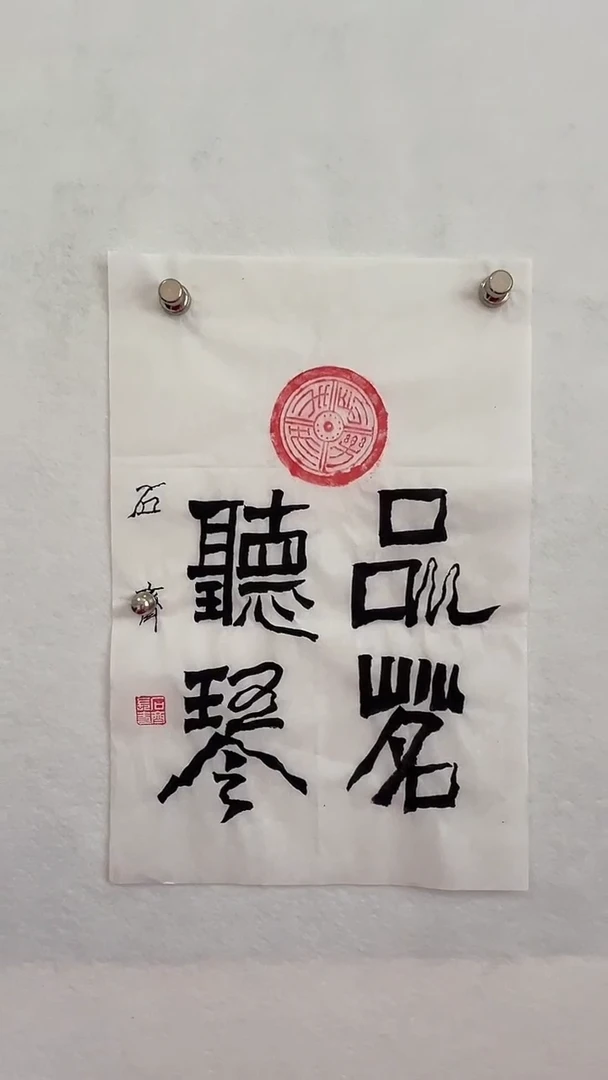 品茗
聽琴
石齊